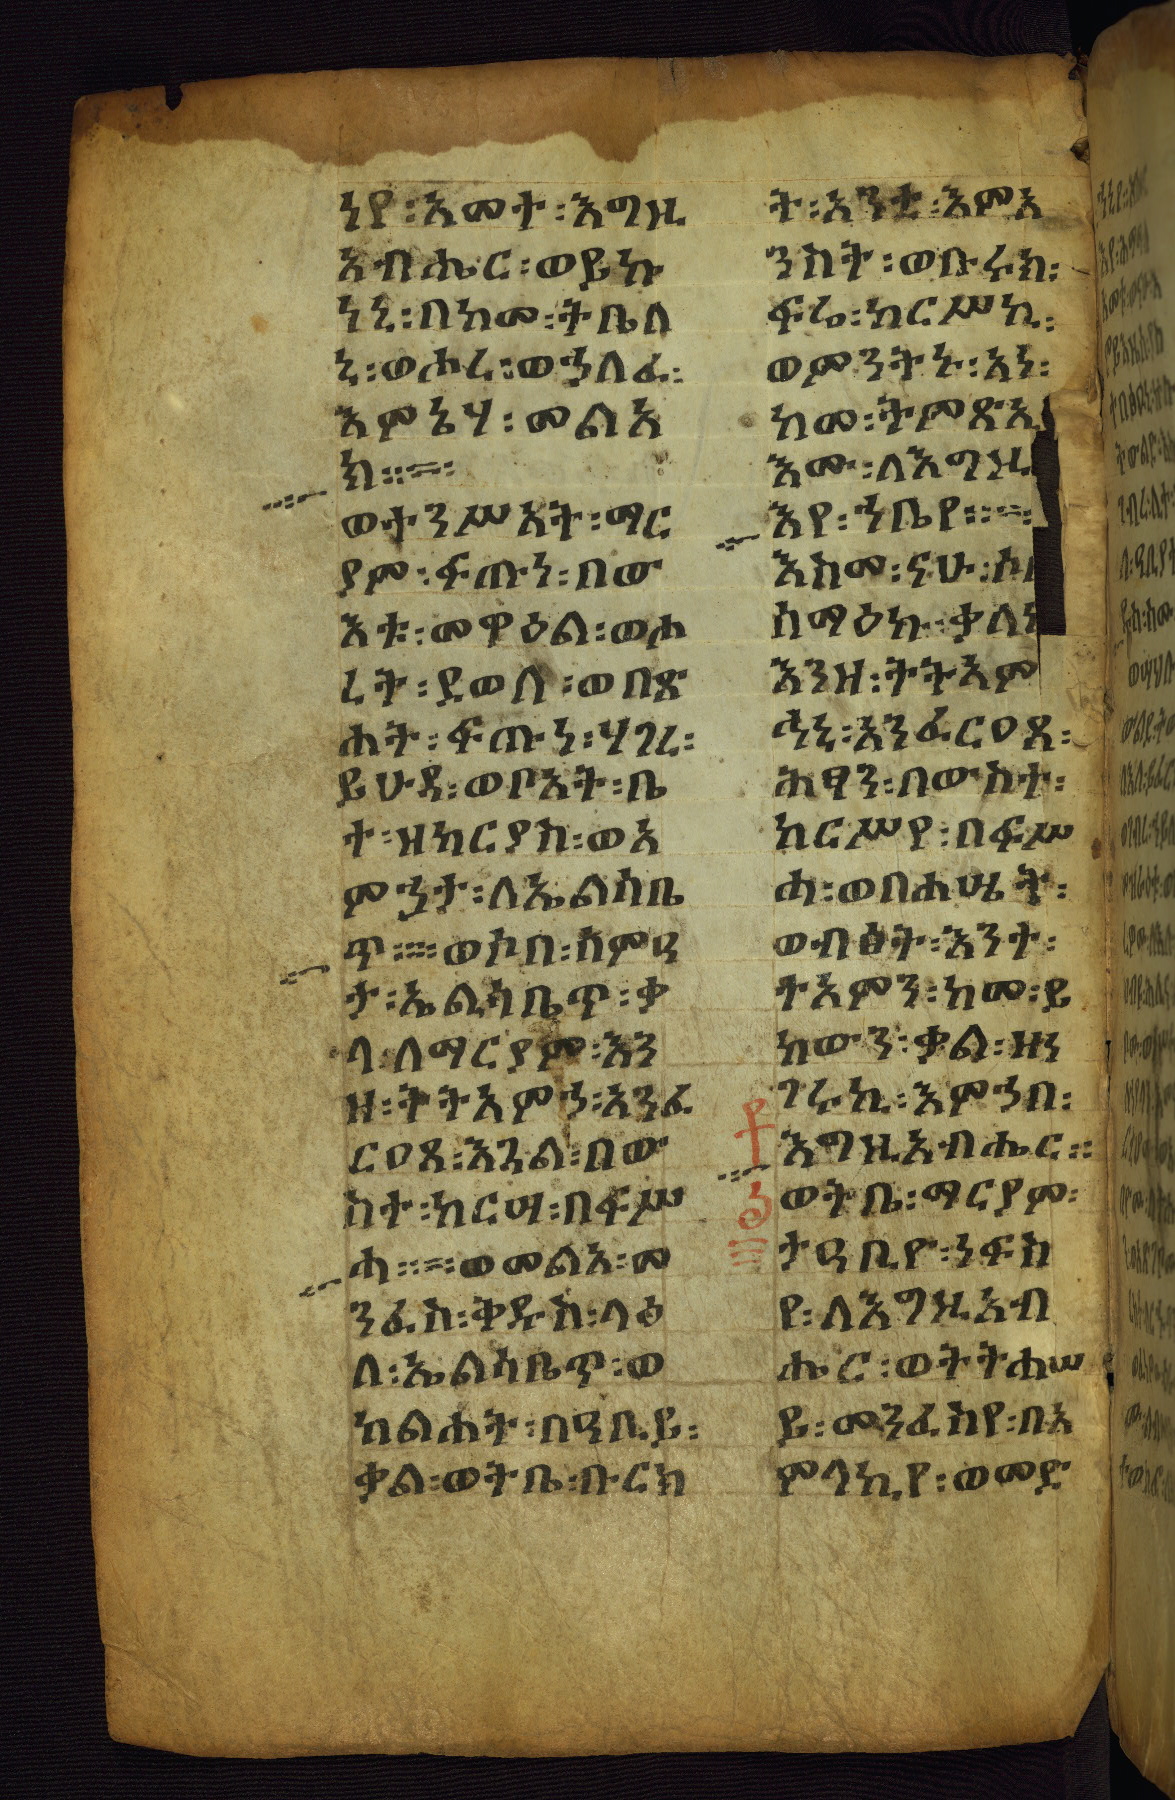 ነየ፡አመተ፡እግዚ
አብሔር፡ወይኩ
ነኒ፡በከመ፡ትቤለ
ኒ፡ወሖረ፡ወኃለፈ፡
እምኔሃ፡መልአ
ክ።
ወተንሥአት፡ማር
ያም፡ፍጡነ፡በው
እቱ፡መዋዕል፡ወሖ
ረት፡ደወለ፡ወበጽ
ሐት፡ፍጡነ፡ሃገረ፡
ይሁዳ፡ወቦአት፡ቤ
ተ፡ዝክርያስ፡ወአ
ምኃታ፡ለኤልሳቤ
ጥ።ወሶበ፡ሰምዓ
ታ፡ኤልሳቤጥ፡ቃ
ላ፡ለማርያም፡እን
ዘ፡ትትአምኅ፡አንፈ
ርዐጸ፡እጓል፡በው
ስተ፡ከርሣ፡በፍሥ
ሓ።ወመልአ፡መ
ንፈስ፡ቅዱስ፡ላዕ
ለ፡ኤልሳቤጥ፡ወ
ከልሐት፡በዓቢይ፡
ቃል፡ወትቤ፡ቡርክ
ት፡አንቲ፡እምአ
ንስት፡ወቡሩክ፡
ፍሬ፡ከርሥኪ፡
ወምንትኑ፡አነ፡
ከመ፡ትምጽእ
እሙ፡ለእግዚ
እየ፡ኀቤየ።
እስመ፡ናሁ፡ሶ
ሰማዕኩ፡ቃለ
እንዘ፡ትትአም
ኂኒ፡አንፈርዐጸ፡
ሕፃን፡በውስተ፡
ከርሥየ፡በፍሥ
ሓ፡ወበሐሤት፡
ወብፅት፡አንተ፡
ተአምን፡ከመ፡ይ
ከውን፡ቃል፡ዘነ
ገሩኪ፡እምኀበ፡
እግዚአብሔር።
ወትቤ፡ማርያም፡
ታዓቢዮ፡ነፍስ
የ፡ለእግዚአብ
ሔር፡ወትትሐሠ
ይ፡መንፈስየ፡በአ
ምላኪየ፡ወመድ